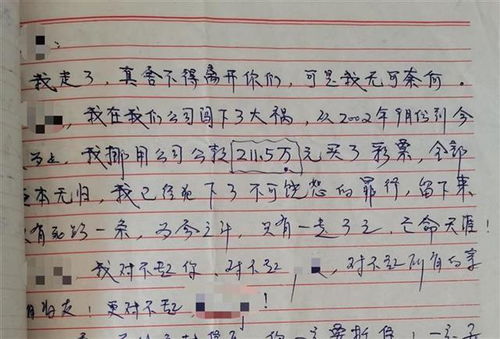 ：
我走了，真舍不得离开你们，可是我无可奈何。
，我在我们公司闯下了大祸，从2002年9月份到今
为止，我挪用公司公款211.5万元买了彩票，全部
本无归，我已经犯下了不可饶恕的罪行，留下来
有死路一条，为今之计，只有一走了之，亡命天涯！
，我对不起你，对不起，对不起所有的亲
！更对不起！
你一定要